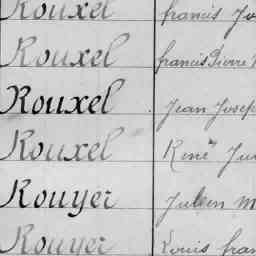 Rouxel francis Jo
Rouxel francis Pierre
Rouxel Jean Josep
Rouxel René Jul
Rouyer Julien M
Rouyer Louis fran